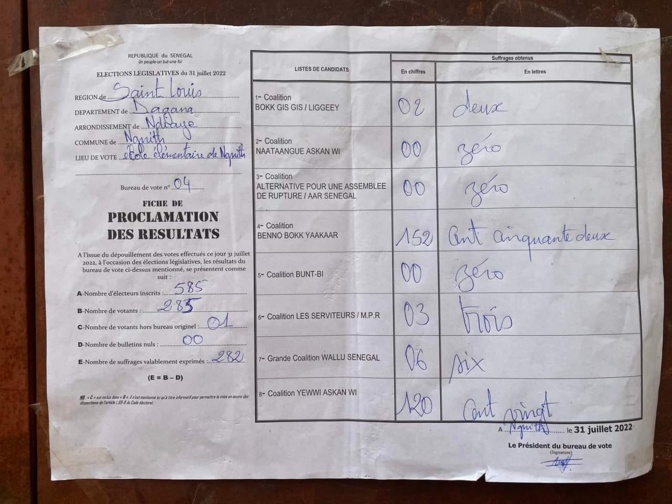 REPUBLIQUE DU SENEGAL
Un peuple-un but-une foi
ELECTIONS LEGISLATIVES du 31 juillet 2022
REGION de Saint Louis
DEPARTEMENT de Dagana
ARRONDISSEMENT de Ndiaye
COMMUNE de Ngnith
LIEU DE VOTE école élémentaire de Ngnith
Bureau de vote n° 04
FICHE DE
PROCLAMATION
DES RESULTATS
A l'issue du dépouillement des votes effectués ce jour 31 juillet
2022, à l'occasion des élections législatives, les résultats du
bureau de vote ci-dessus mentionné, se présentent comme
suit :
A-Nombre d'électeurs inscrits : 585
B-Nombre de votants : 285
C-Nombre de votants hors bureau originel : 01
D-Nombre de bulletins nuls : 00
E-Nombre de suffrages valablement exprimés : 282
(E = B – D)
LISTES DE CANDIDATS
Suffrages obtenus
En chiffres
En lettres
1- Coalition
BOKK GIS GIS / LIGGEEY
02 deux
2- Coalition
NAATAANGUE ASKAN WI
00 zéro
3- Coalition
ALTERNATIVE POUR UNE ASSEMBLEE
DE RUPTURE / AAR SENEGAL
00 zéro
4- Coalition
BENNO BOKK YAAKAAR
152 cent cinquante deux
5- Coalition BUNT-BI
00 zéro
6- Coalition LES SERVITEURS / M.P.R
03 trois
7- Grande Coalition WALLU SENEGAL
06 six
8- Coalition YEWWI ASKAN WI
120 cent vingt
A Ngnith le 31 juillet 2022
Le Président du bureau de vote
(Signature)